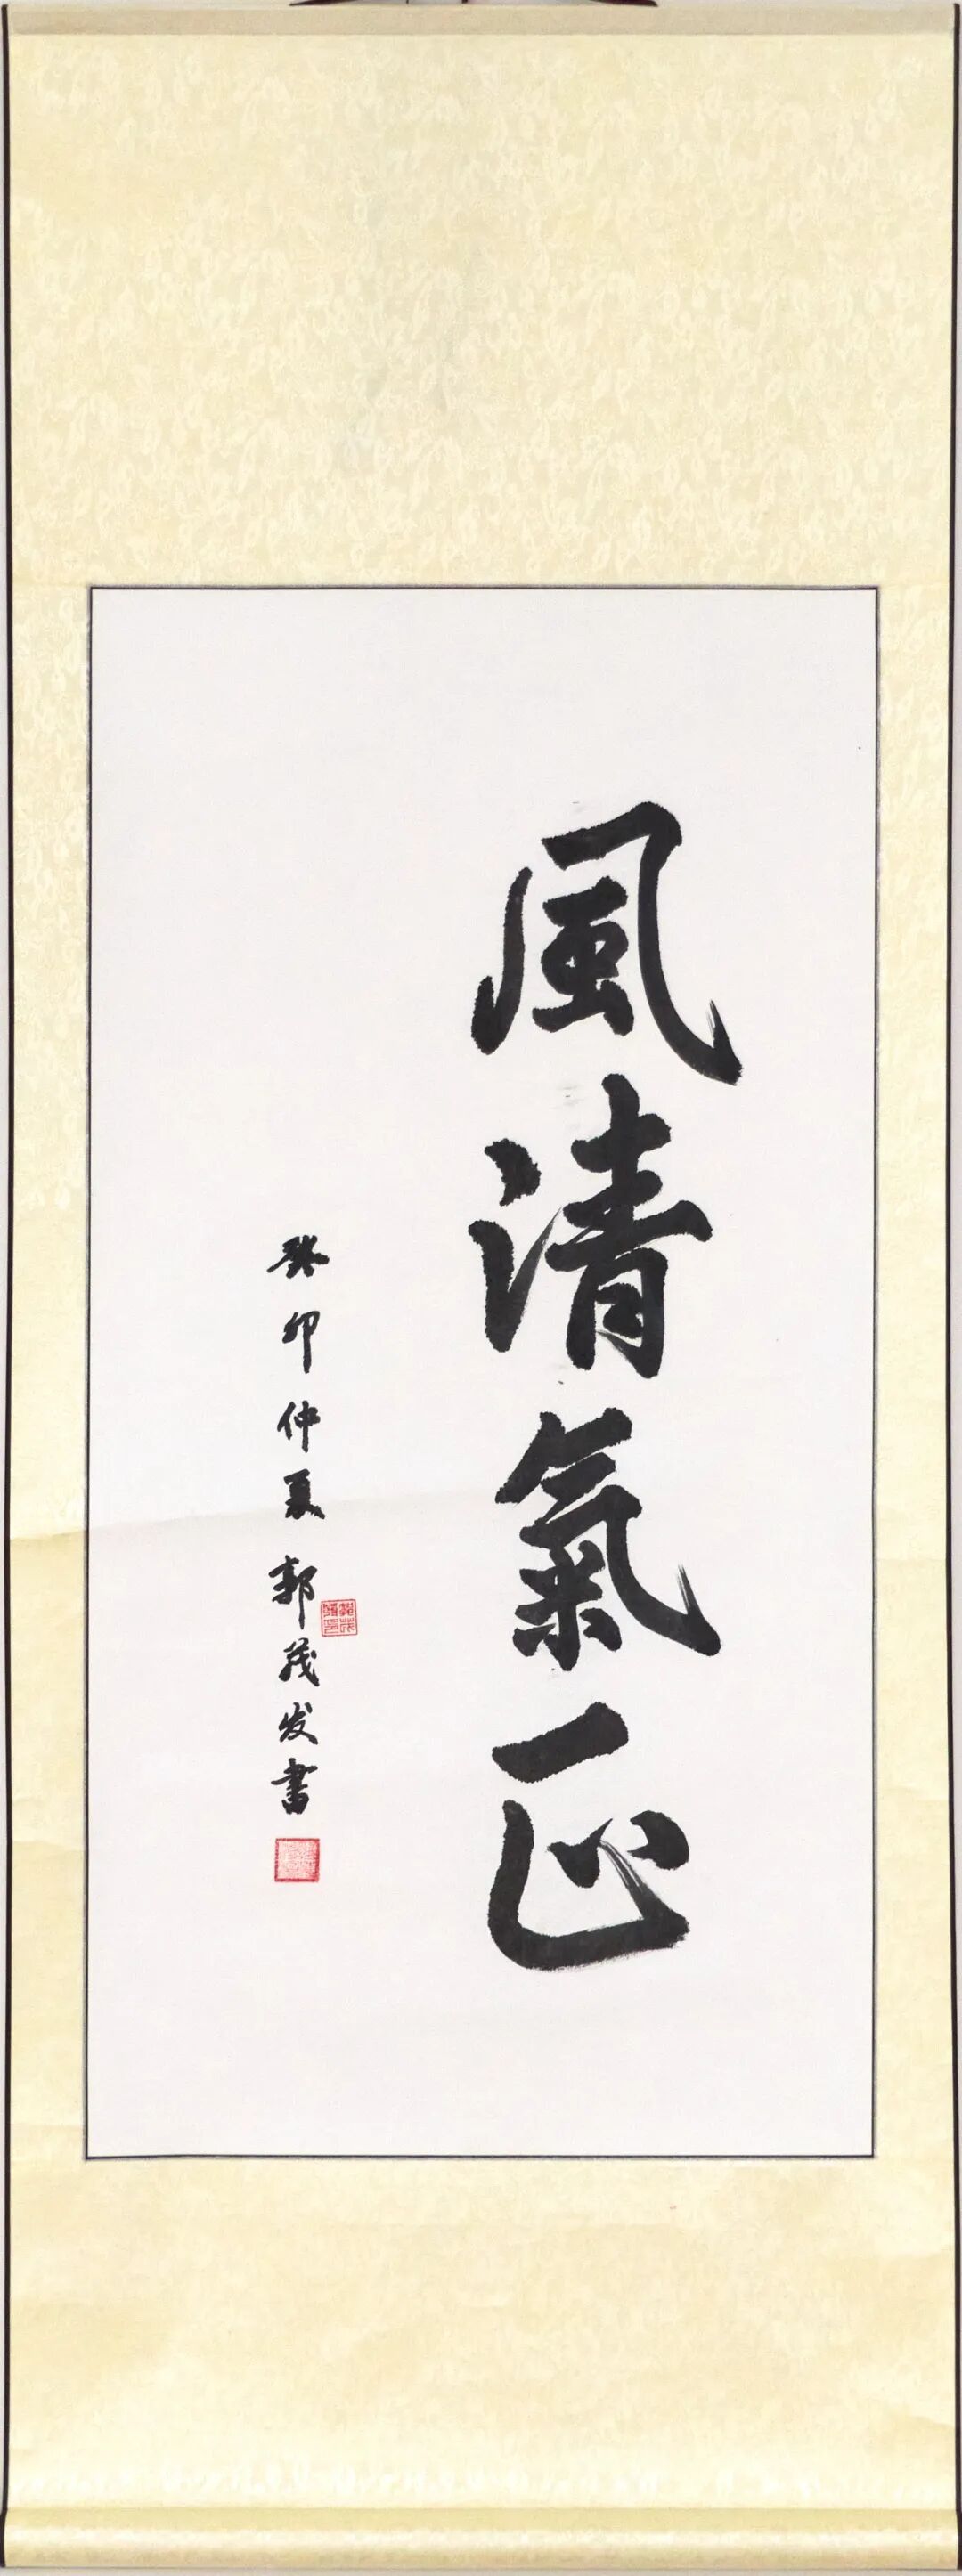 風清氣正
癸卯仲夏郭茂发書